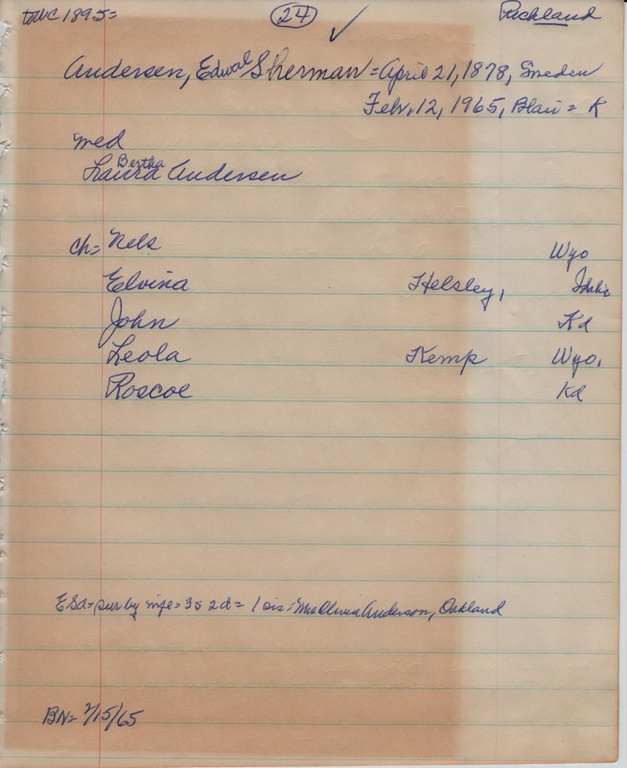 to WC 1895= 24 ✓ Richland
Andersen, Edwal Sherman = April 21, 1878, Sweden
Feb, 12, 1965, Blair = K
med
Bertha
Laura Andersen
ch= Nels Wyo
Elvina Helsley, Idaho
John Kd
Leola Kemp Wyo,
Roscoe Kd
ESA= sur by wife = 3s 2d = 1 sis = Mrs Anderson, Oakland
BN= 2/15/65